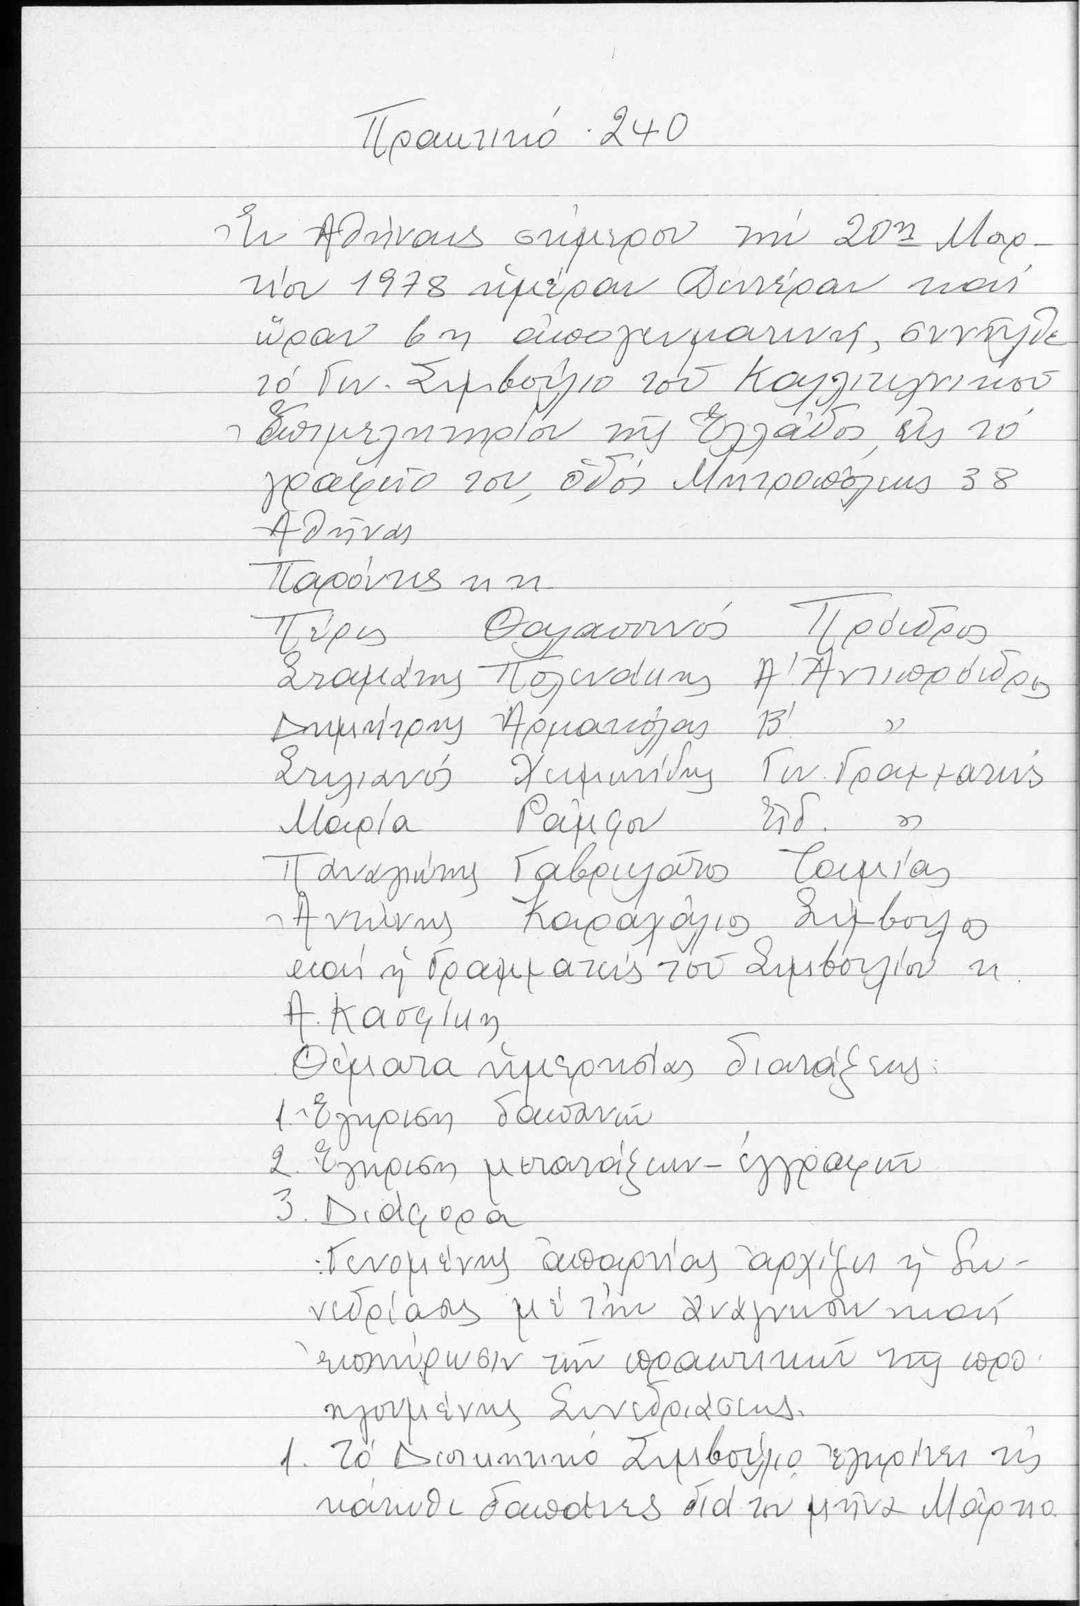 Πρακτικό 240
Ἐν Ἀθήναις σήμερον τήν 20η Μαρ-
τίου 1978 ἡμέραν Δευτέραν καί
ὥραν 6η ἀπογευματινή, συνῆλθε
τό Γεν. Συμβούλιο τοῦ Καλλιτεχνικοῦ
Ἐπιμελητηρίου τῆς Ἑλλάδος, εἰς τό
γραφεῖο του, ὁδός Μητροπόλεως 38
Ἀθῆναι
Παρόντες κ κ
Πέρις Θαλασσινός Πρόεδρος
Σταμάτης Πολενάκης Α' Ἀντιπρόεδρος
Δημήτρης Ἀρμακόλας Β' "
Στυλιανός Χειμωνίδης Γεν. Γραμματεύς
Μαρία Ράμφου Εἰδ. "
Παναγιώτης Γαβριελᾶτος Ταμίας
Ἀντώνης Καραχάλιος Σύμβουλος
καί ἡ Γραμματεύς τοῦ Συμβουλίου κ.
Α. Κασφίκη
Θέματα ἡμερησίας διατάξεως:
1. Ἔγκριση δαπανῶν
2. Ἔγκριση μετατάξεων - ἐγγραφῶν
3. Διάφορα
Γενομένης ἀπαρτίας ἀρχίζει ἡ Συ-
νεδρίασις μέ τήν ἀνάγνωσιν καί
ἐπικύρωσιν τῶν πρακτικῶν τῆς προ
ηγουμένης Συνεδριάσεως.
1. Τό Διοικητικό Συμβούλιο ἐγκρίνει τίς
κάτωθι δαπάνες διά τόν μῆνα Μάρτιο